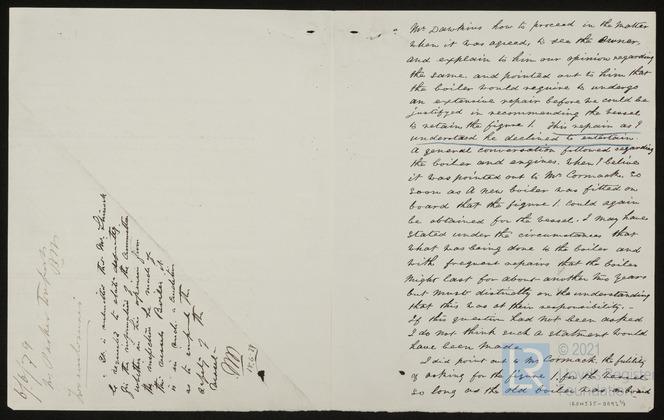 Mr Dawkins how to proceed in the matter
when it was agreed, to see the Owner,
and explain to him our opinion regarding
the same and pointed out to him that
the boiler would require to undergo
an extensive repair before we could be
justifyed in recommending the vessel
to retain the figure 1. This repair as I
understood he declined to entertain
A general conversation followed regarding
the boiler and engines. When I believe
it was pointed out to Mr Cormack, so
soon as a new boiler was fitted on
board that the figure 1 could again
be obtained for the vessel. I may have
stated under the circumstances that
what was being done to the boiler and
with frequent repairs that the boiler
might last for about another two years
but most distinctly on the understanding
that this was at their responsibility. -
If this question had not been asked
I do not think such a statment would
have been made.
I did point out to Mr Cormack the futility
of asking for the figure 1. for the vessel
so long as the old boiler was on board
It is submitted that Mr
be requested to state
for the information of the Committee
whether in his opinion from
the inspection he made of
the vessels Boiler it
is in such a condition
as to the
safety of the
Vessel -
6/6/79
© 2021
Lloyd's Register
Foundation